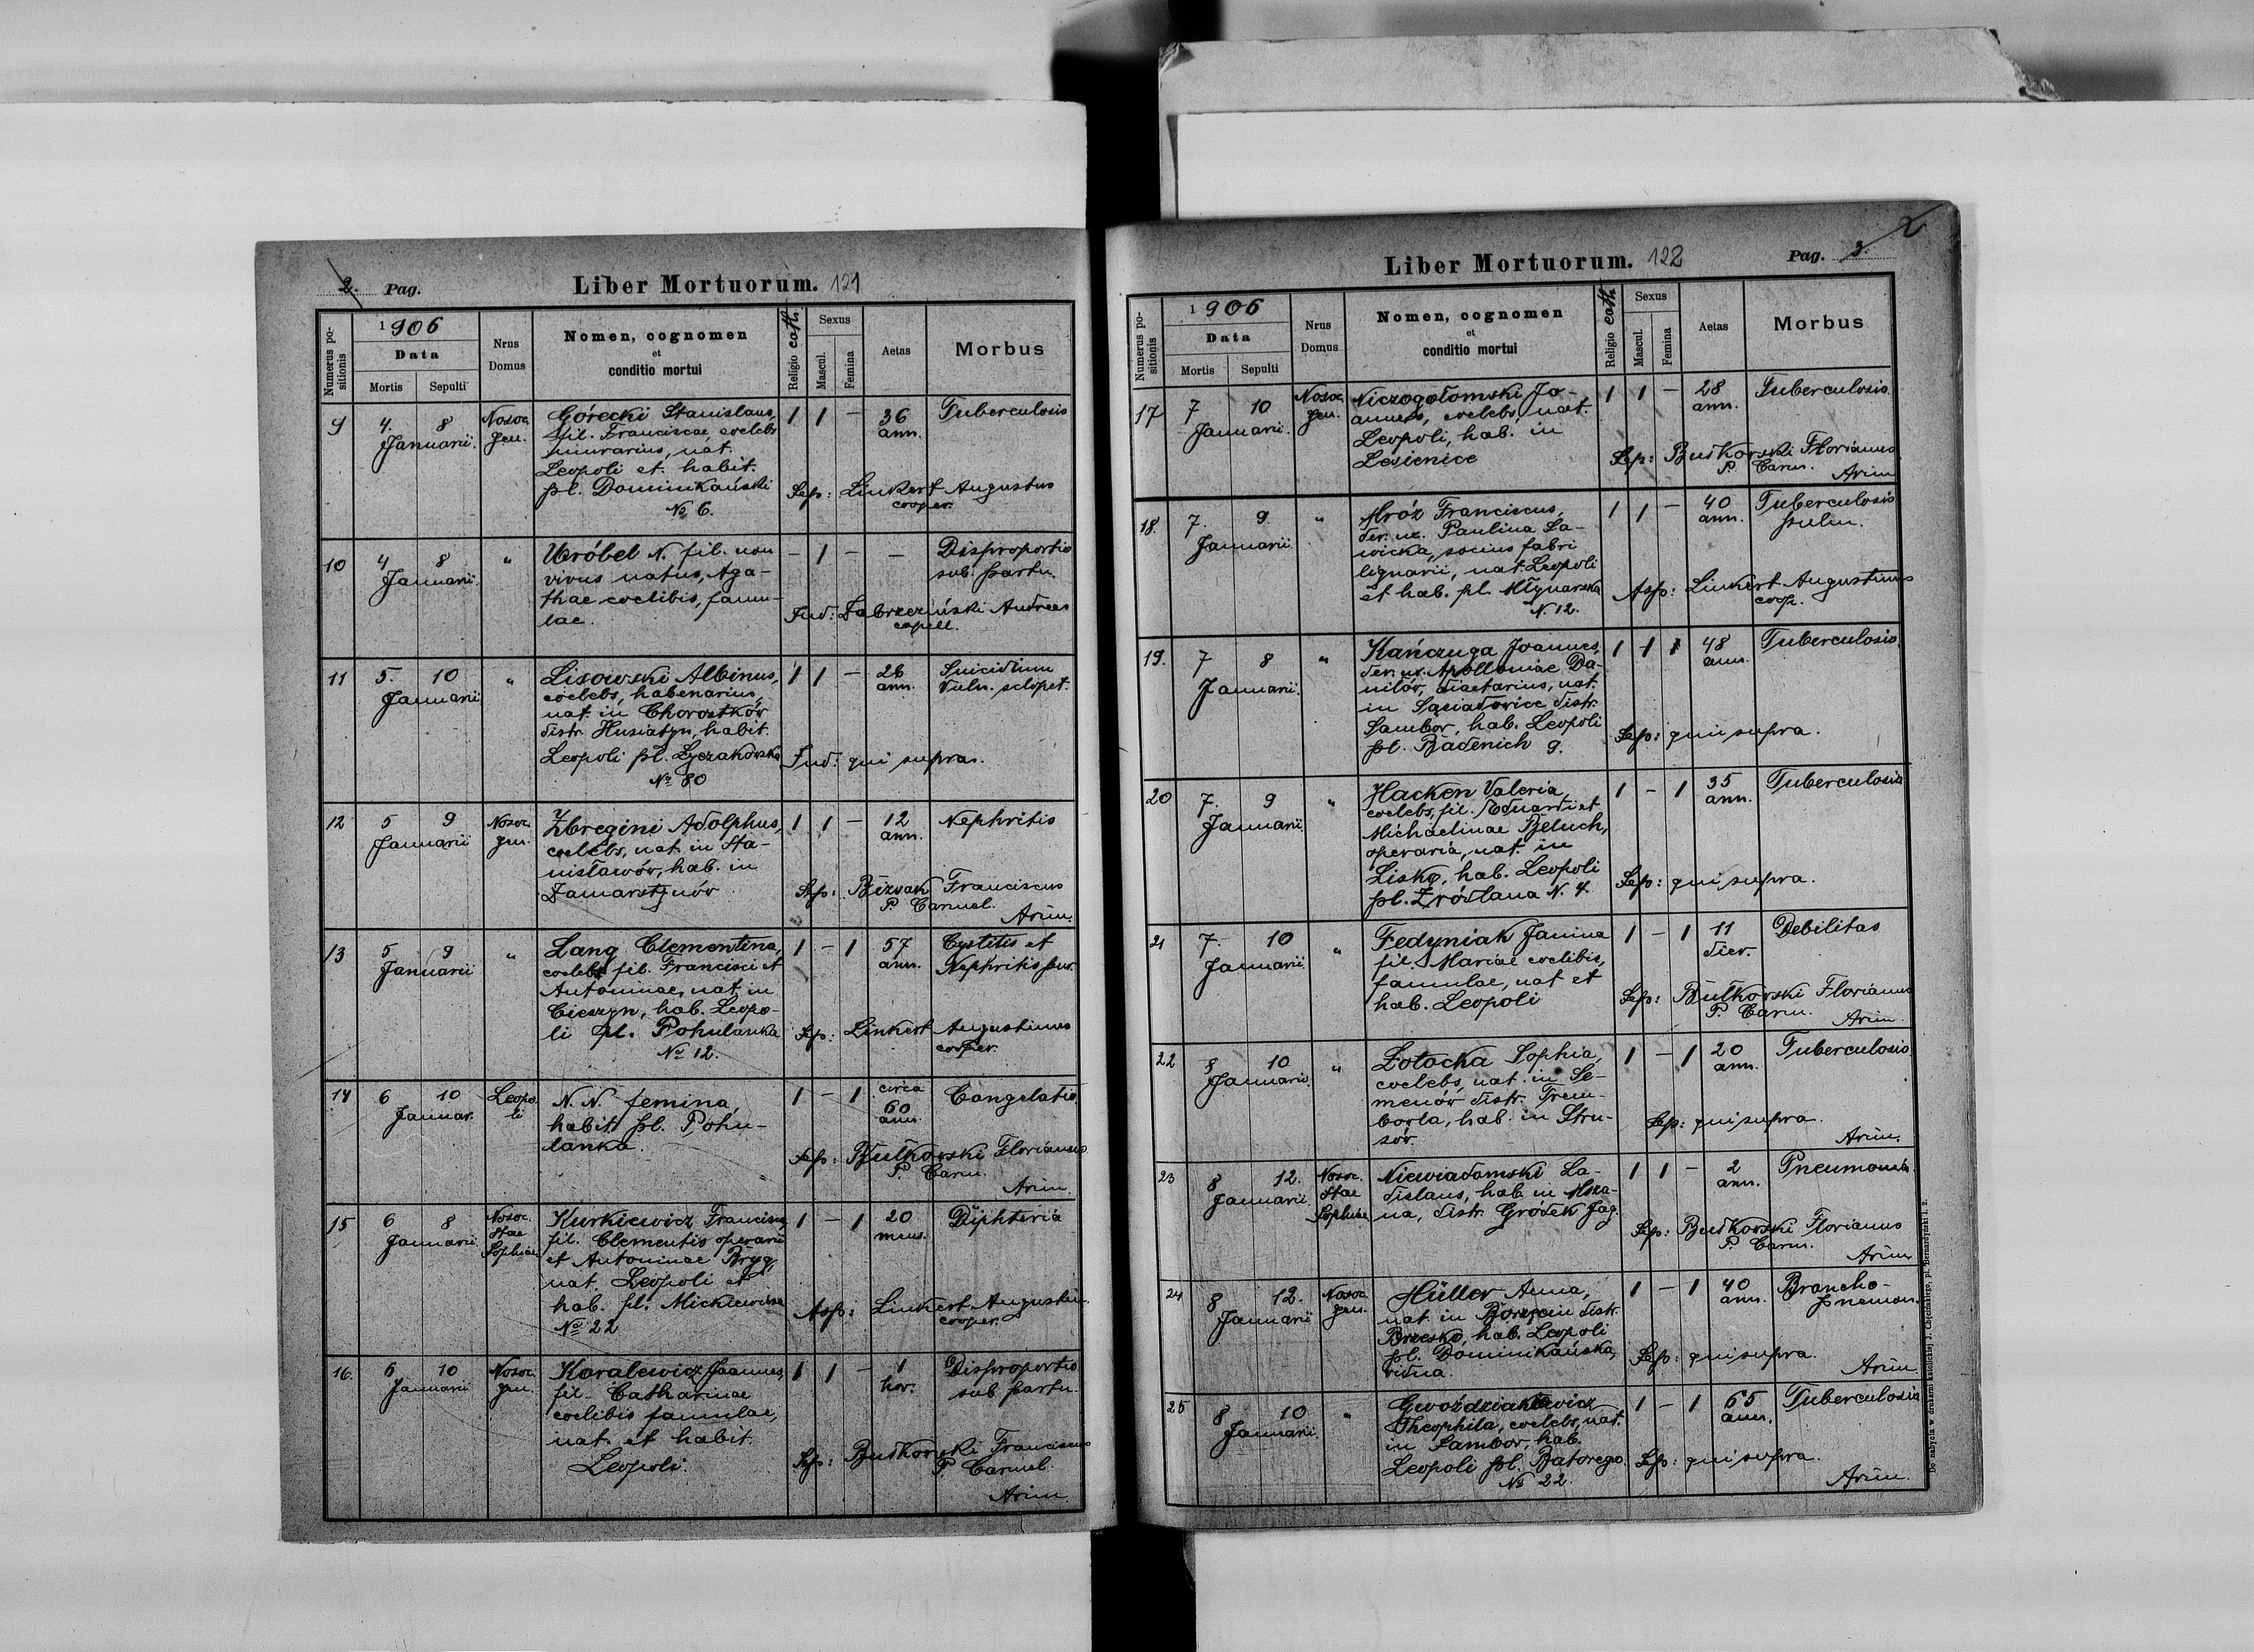 2. Pag.
Liber Mortuorum. 121
Numerus positionis
1906
Data
Mortis
Sepulti
Nrus Domus
Nomen, cognomen
et
conditio mortui
Religio cath.
Sexus
Mascul.
Femina
Aetas
Morbus
9 4. 8 Januarii. Nosoc. gen.
Górecki Stanislaus,
fil. Franciscae, coelebs
murarius, nat.
Leopoli et habit.
pl. Dominikański
№ 6.
1 1 – 36 ann. Tuberculosis
Sep: Linkert Augustus
cooper.
10 4 8 Januarii. "
Wróbel N. fil. non
vivus natus, Aga-
thae coelibis, famu-
lae.
– 1 – – Disproportio
sub partu.
Ind: Dabrzeziński Andreas
capell.
11 5. 10 Januarii "
Lisowski Albinus,
coelebs, habenarius,
nat. in Chorostków
distr. Husiatyn, habit.
Leopoli pl. Łyczakowska
№ 80
1 1 – 26 ann. Suicidium
Vuln. sclopet.
Ind: qui supra.
12 5 9 Januarii Nosoc. gen.
Zbregini Adolphus,
coelebs, nat. in Sta-
nisławów, hab. in
Zamarstynów
1 1 – 12 ann. Nephritis
Sep: Bizoak Franciscus
P. Carmel.
Arim.
13 5 9 Januarii "
Lang Clementina,
coelebs fil. Francisci et
Antoninae, nat. in
Cieszyn, hab. Leopo-
li pl. Pohulanka
№ 12.
1 – 1 57 ann. Cystitis et
Nephritis pur.
Sep: Linkert Augustinus
cooper.
14 6 10 Januar. Leopo-
li
N. N. femina,
habit. pl. Pohu-
lanka.
1 – 1 circa 60 ann. Congelatio
Sep: Bułkowski Florianus
P. Carm.
Arim
15 6 8 Januarii Nosoc. Stae Sophiae
Kurkiewicz Francisca
fil. Clementis operarii
et Antoninae Bryg,
nat. Leopoli et
hab. pl. Mickiewicza
№ 22
1 – 1 20 mens. Diphteria
Asp: Linkert Augustin.
cooper.
16. 6 10 Januarii Nosoc. gen.
Koralewicz Joannes,
fil. Catharinae
coelibis famulae,
nat. et habit.
Leopoli.
1 1 – 1 hor. Disproportio
sub partu.
Sep: Butkowski Franciscus
P. Carmel.
Arim
Liber Mortuorum. 122
Pag. 3.
Numerus positionis
1906
Data
Mortis
Sepulti
Nrus Domus
Nomen, cognomen
et
conditio mortui
Religio cath
Sexus
Mascul.
Femina
Aetas
Morbus
17 7 10 Januarii. Nosoc. gen.
Niezogołomski Jo-
annes, coelebs, nat.
Leopoli, hab. in
Lesienice
1 1 – 28 ann. Tuberculosis
Sep: Butkowski Florianus
P. Carm.
Arim
18. 7. 9. Januarii "
Mróz Franciscus,
der. ux. Paulina Sa-
wicka, socius fabri
lignarii, nat. Leopoli
et hab. pl. Młynarska
N. 12.
1 1 – 40 ann. Tuberculosis
pulm.
Asp: Linkert Augustinus
coop.
19. 7 8 Januarii. "
Kańczuga Joannes,
der. ux. Apolloniae Da-
nilów, diaetarius, nat.
in Sąsiadowice distr.
Sambor, hab. Leopoli
pl. Badenich 9.
1 1 48 ann. Tuberculosis.
Sep: qui supra.
20 7. 9 Januarii. "
Hacken Valeria,
coelebs, fil. Eduardi et
Michaelinae Beluch,
operaria, nat. in
Lisko, hab. Leopoli
pl. Źródlana N. 4.
1 – 1 35 ann. Tuberculosis
Sep: qui supra.
21 7. 10 Januarii. "
Fedyniak Janina
fil. Mariae coelibis,
famulae, nat et
hab. Leopoli
1 – 1 11 dier. Debilitas
Sep: Bułkowski Florianus
P. Carm.
Arim.
22 8 10 Januarii. "
Zotocka Sophia,
coelebs, nat. in Se-
menów distr. Trem-
bowla, hab. in Stru-
sów.
1 – 1 20 ann. Tuberculosis.
Sep: qui supra.
Arim.
23 8 12. Januarii Nosoc. Stae Sophiae
Niewiadomski La-
dislaus, hab. in Msza-
na, distr. Gródek Jag.
1 1 – 2 ann. Pneumonia.
Sep: Butkowski Florianus
P. Carm.
Arim
24 8 12. Januarii Nosoc. gen.
Hüller Anna,
nat. in Borzęcin distr.
Brzesko, hab. Leopoli
pl. Dominikańska,
vidua.
1 – 1 40 ann. Brancho-
pneumon.
Sep: qui supra.
Arim
25 8 10 Januarii. "
Gwoździankiewicz
Theophila, coelebs, nat.
in Sambor, hab.
Leopoli pl. Batorego
№ 22.
1 – 1 65 ann. Tuberculosis
Sep: qui supra.
Arim.
Do nabycia w drukarni katolickiej J. Chęcińskiego, pl. Bernardyński l. 2.